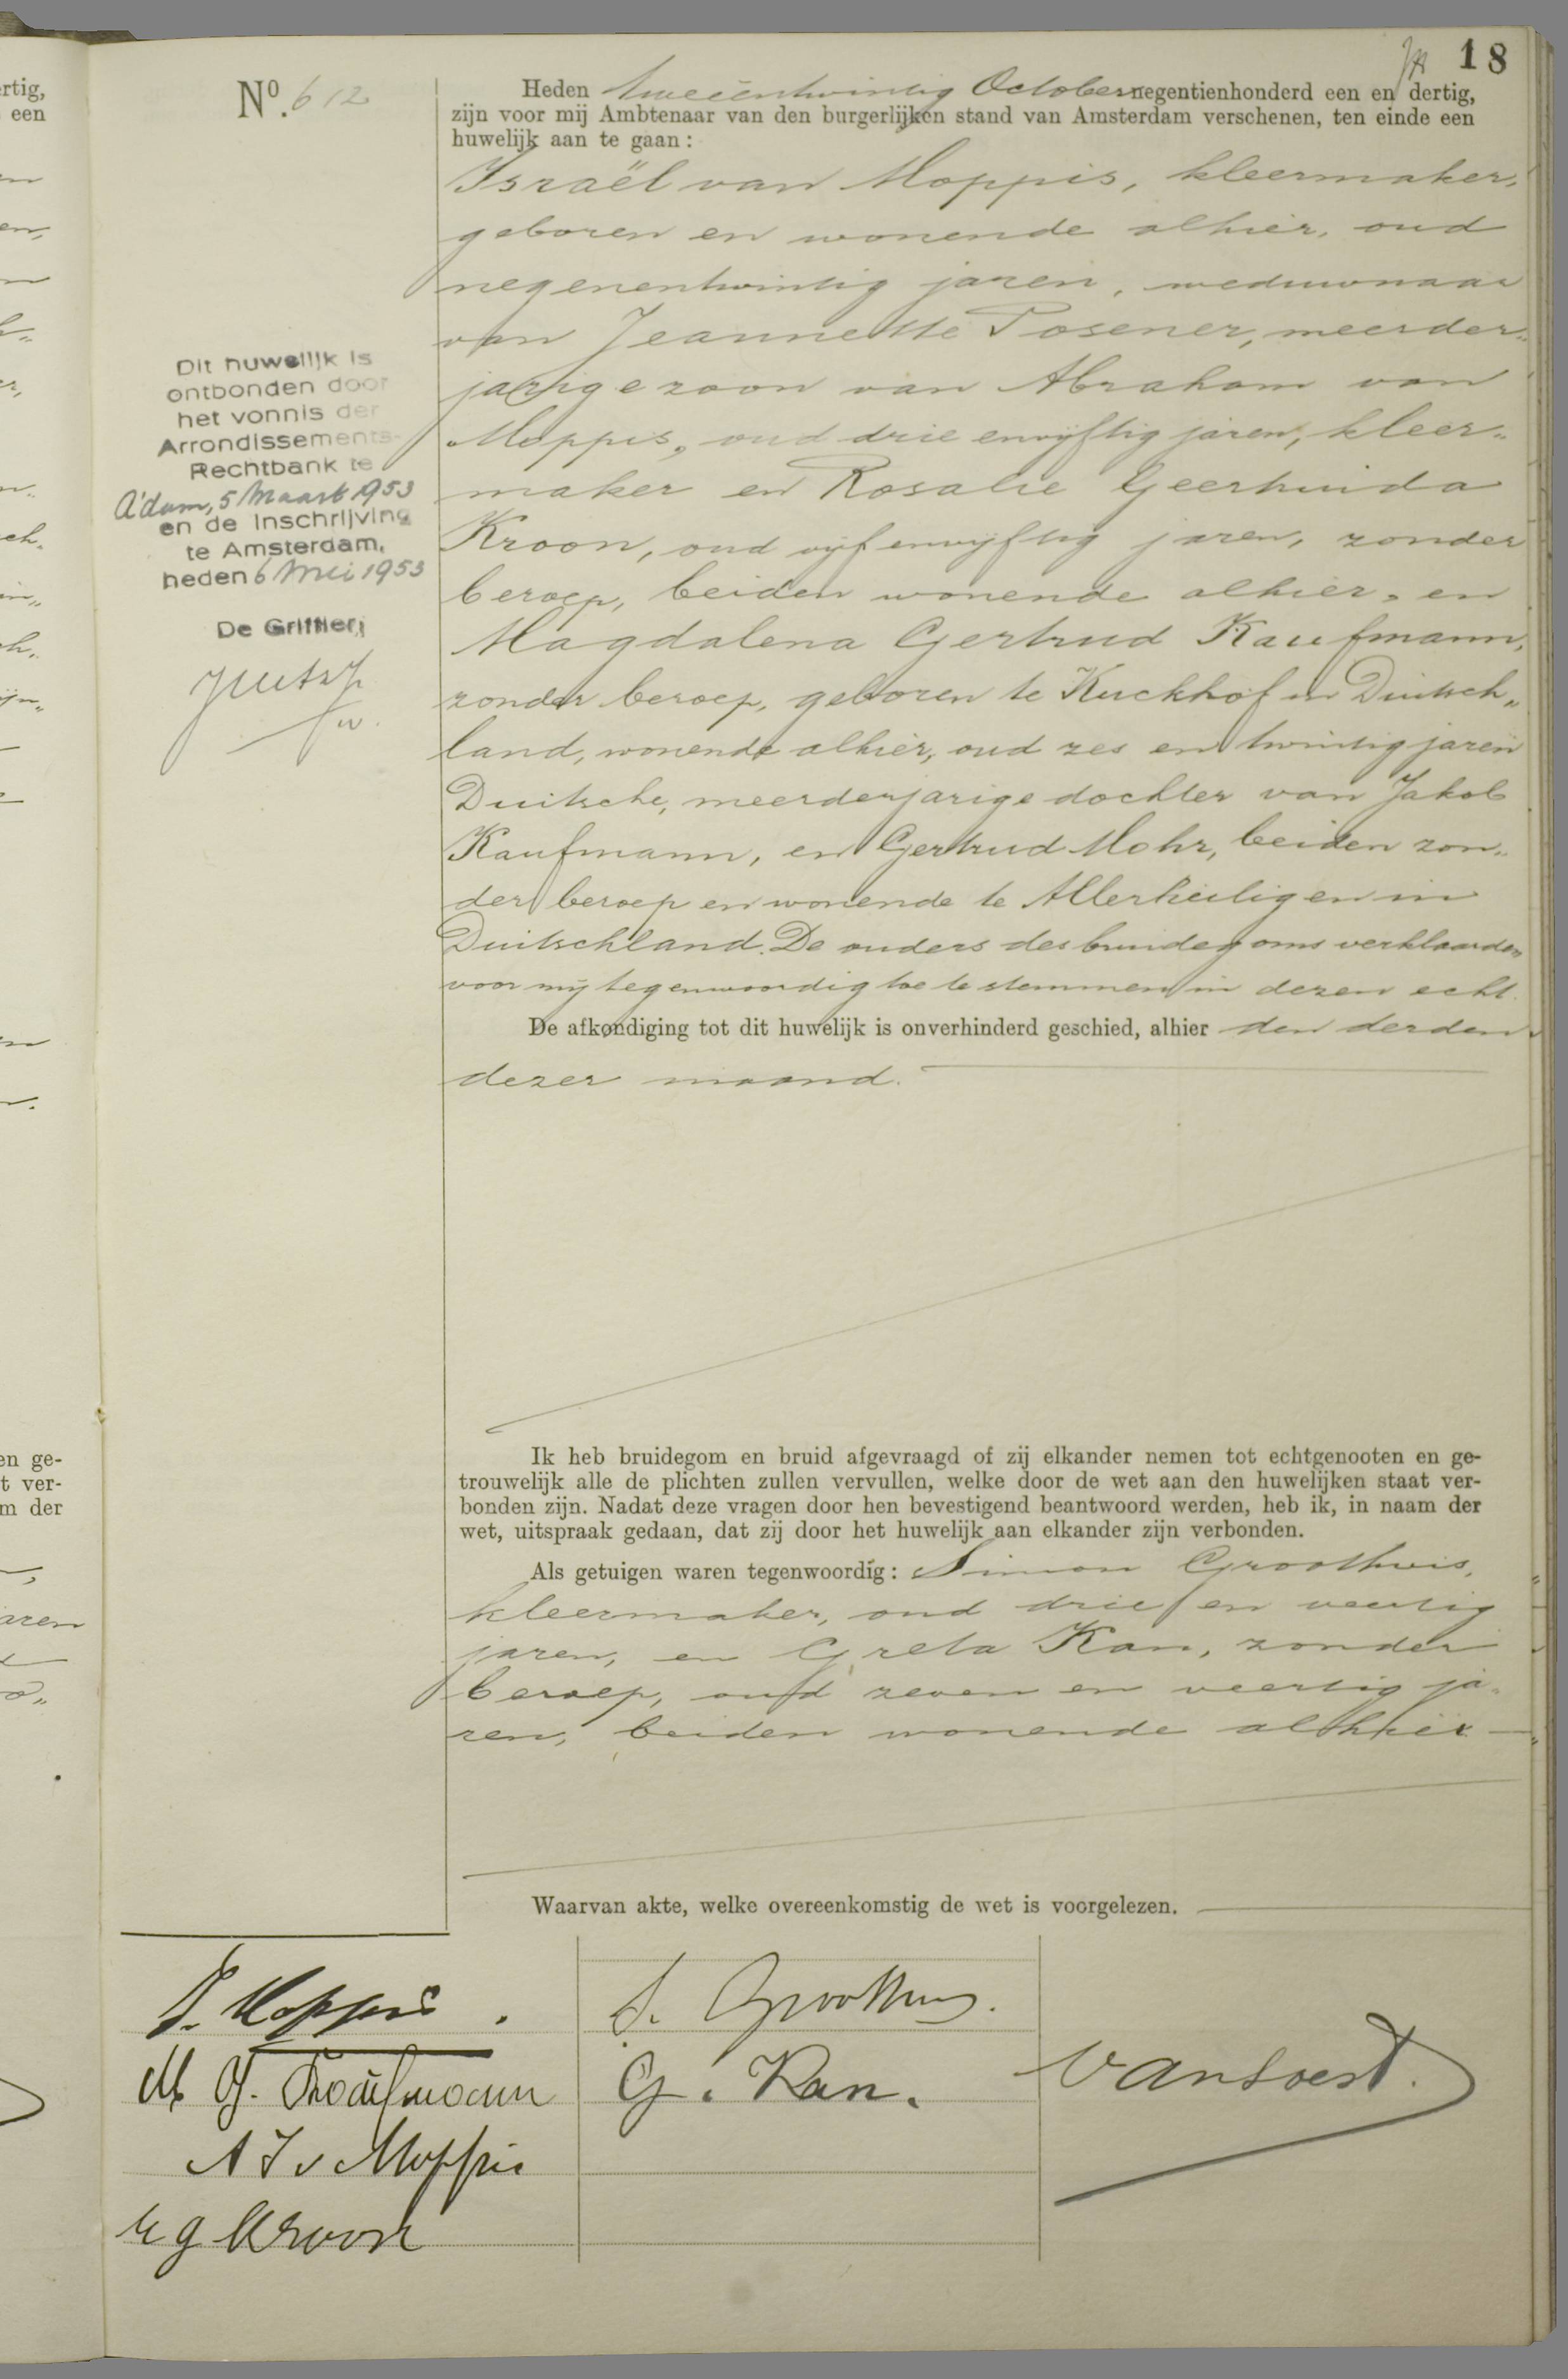 18
Nº. 612
Heden tweeëntwintig October negentienhonderd een en dertig,
zijn voor mij Ambtenaar van den burgerlijken stand van Amsterdam verschenen, ten einde een
huwelijk aan te gaan:
Israël van Moppis, kleermaker,
geboren en wonende alhier, oud
negenentwintig jaren, weduwnaar
van Jeannette Posener, meerder„
jarige zoon van Abraham van
Moppis, oud drie envijftig jaren, kleer„
maker en Rosalie Geertruida
Kroon, oud vijf envijftig jaren, zonder
beroep, beiden wonende alhier, en
Magdalena Gertrud Kaufmann,
zonder beroep, geboren te Kuckhof in Duitsch„
land, wonende alhier, oud zes en twintig jaren
Duitsche, meerderjarige dochter van Jakob
Kaufmann, en Gertrud Mohr, beiden zon„
der beroep en wonende te Allerheiligen in
Duitschland. De ouders des bruidegoms verklaarden
voor mij tegenwoordig toe te stemmen in dezen echt.
De afkondiging tot dit huwelijk is onverhinderd geschied, alhier den derden
dezer maand.
Dit huwelijk is
ontbonden door
het vonnis der
Arrondissements-
Rechtbank te
A'dam, 5 Maart 1953
en de inschrijving
te Amsterdam,
heden 6 Mei 1953
De Griffier,
Ik heb bruidegom en bruid afgevraagd of zij elkander nemen tot echtgenooten en ge-
trouwelijk alle de plichten zullen vervullen, welke door de wet aan den huwelijken staat ver-
bonden zijn. Nadat deze vragen door hen bevestigend beantwoord werden, heb ik, in naam der
wet, uitspraak gedaan, dat zij door het huwelijk aan elkander zijn verbonden.
Als getuigen waren tegenwoordig: Simon Groothuis,
kleermaker, oud drie en veertig
jaren, en Greta Kan, zonder
beroep, oud zeven en veertig ja„
ren, beiden wonende alhier
Waarvan akte, welke overeenkomstig de wet is voorgelezen.
I. Moppis.
M G. Kaufmann
A I v Moppis
R G Kroon
S. Groothuis.
G. Kan.
van Soest.
rtig,
een
en ge-
t ver-
m der